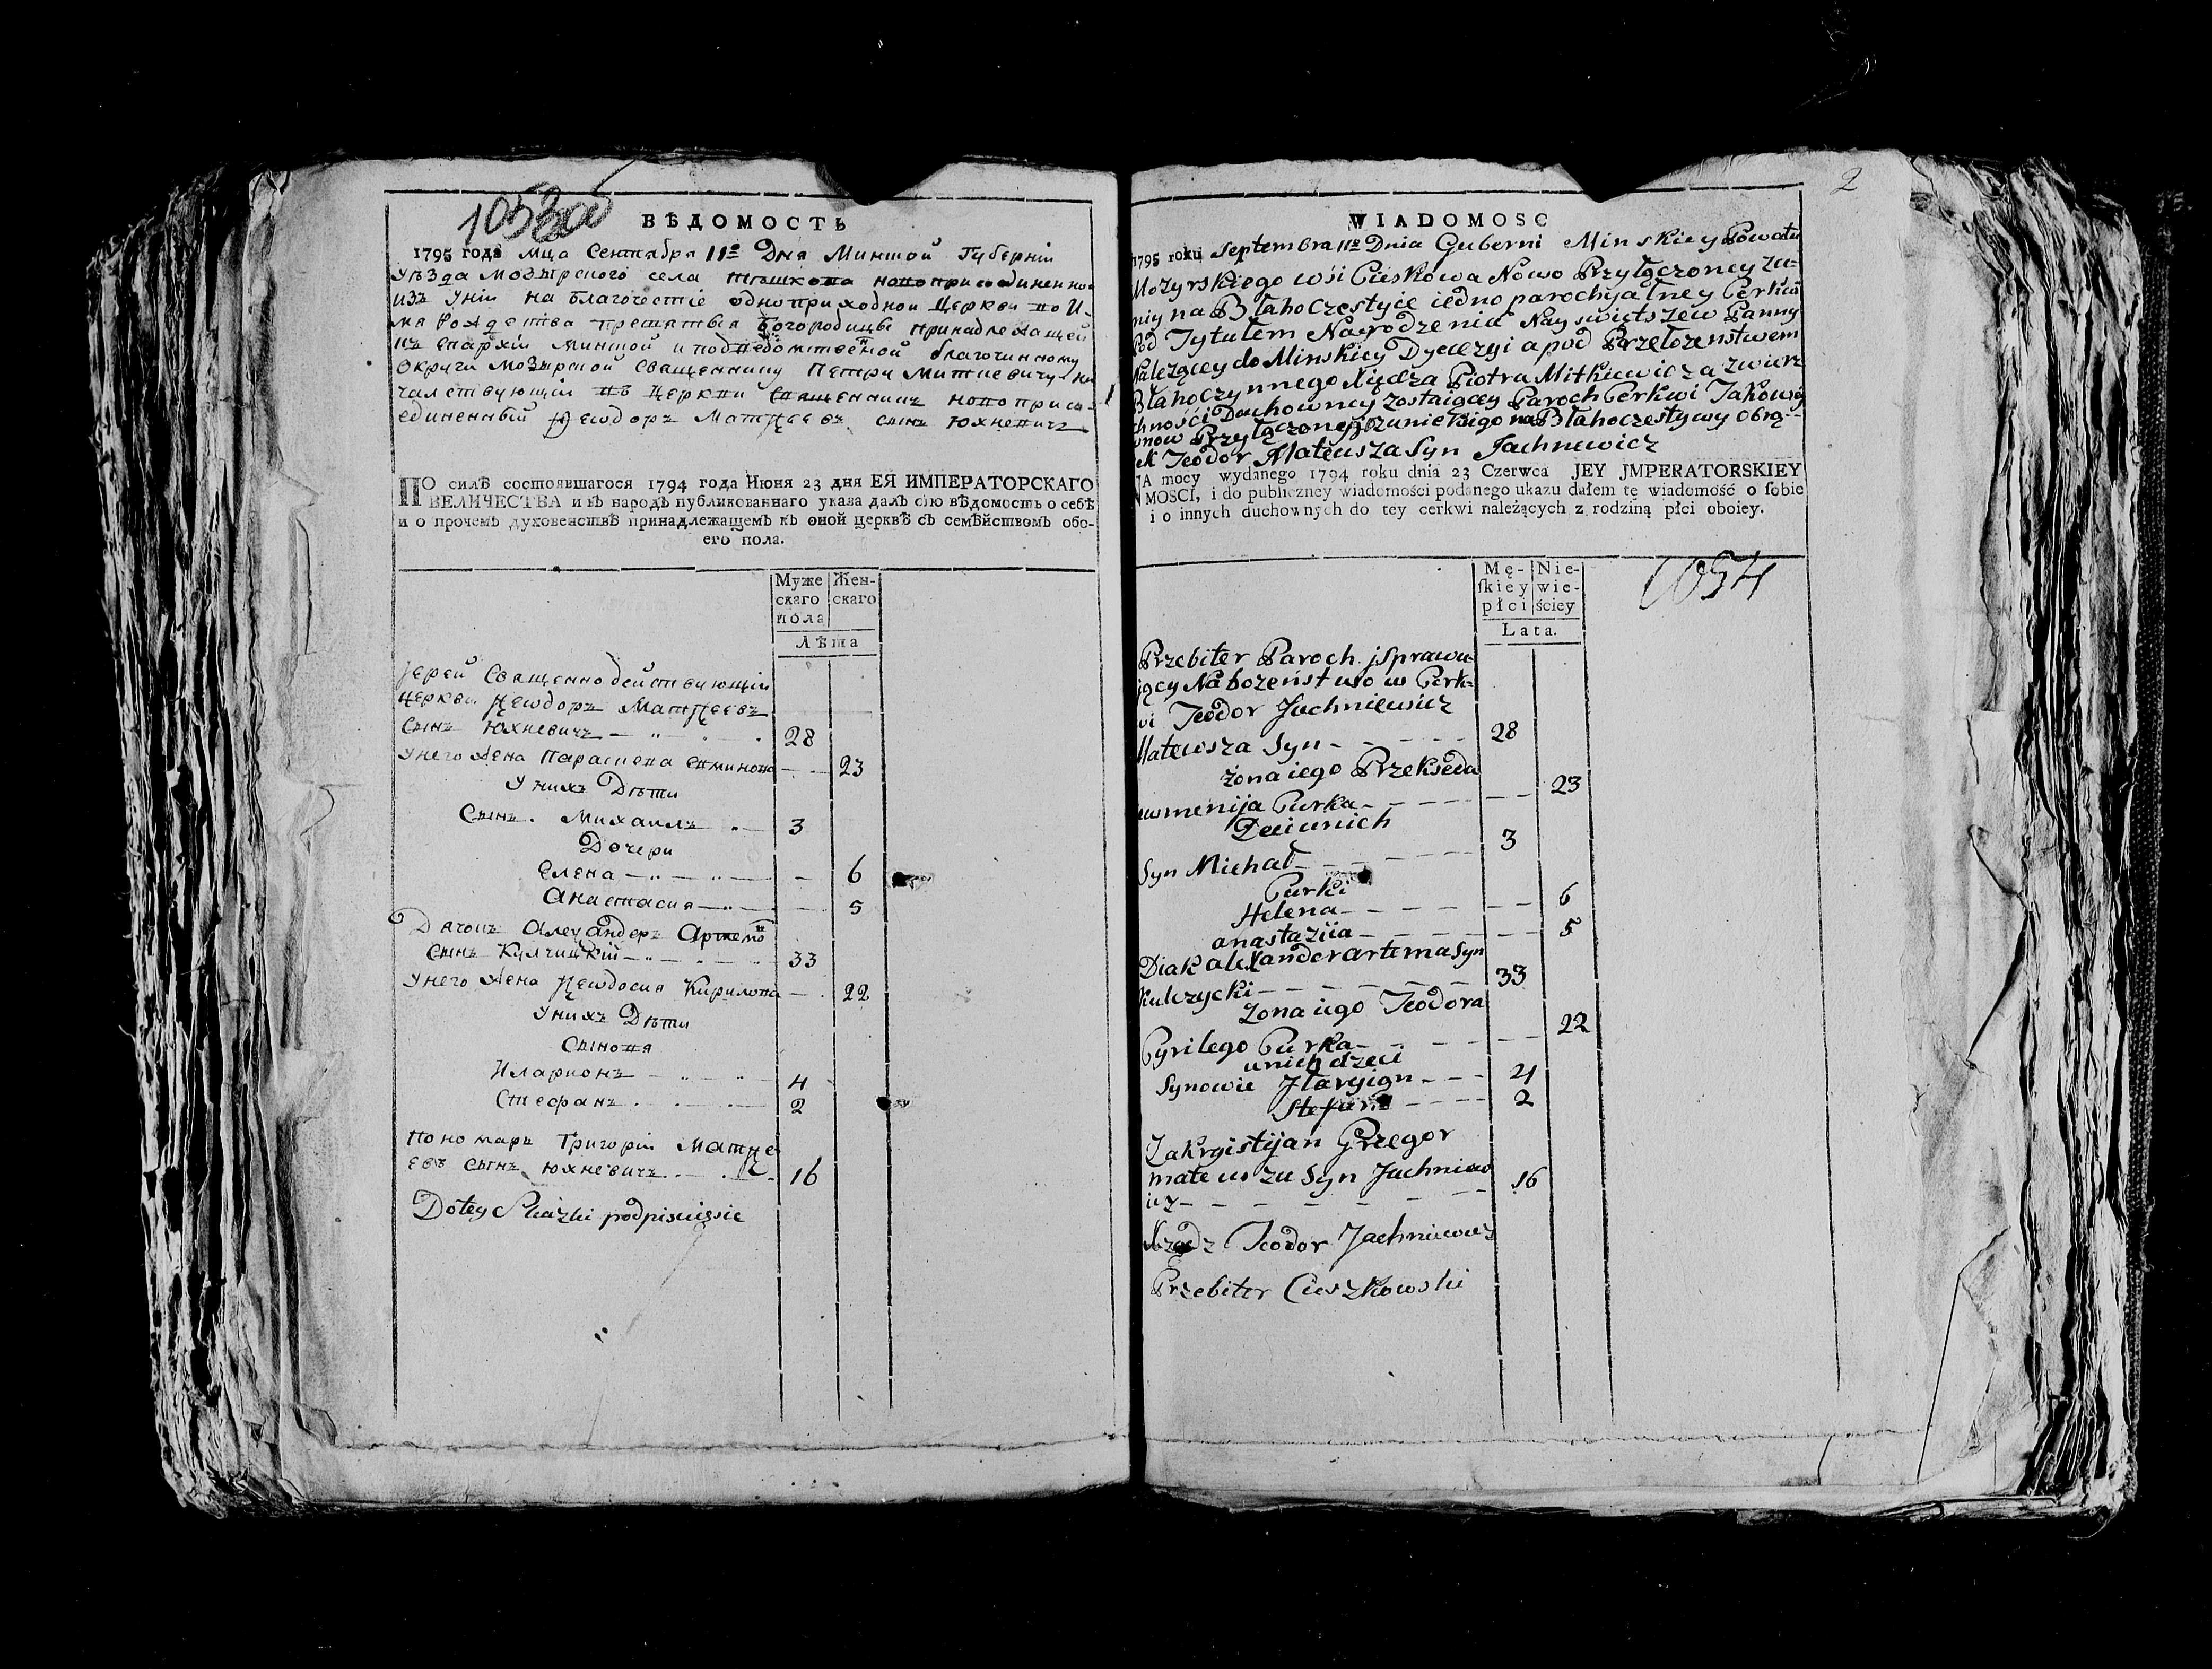 1053
ВѢДОМОСТЬ
1795 года мца Сентября 11го Дня Минской Губернiи
Уѣзда Мозырского села Тѣшкова новоприсоединенно
изъ Унiи на Благочестiе одноприходной Церкви во И-
мя Рождества пресвятыя Богородицы принадлежащей
къ епархiи Минской и подведомственной благочинному
Округи Мозырской Священнику Петру Миткевичу на
чалствующiй въ Церкви Священникъ новоприсо-
единенный Ѳеодоръ Матѳеевъ сынъ Юхневичъ
ПО силѣ состоявшагося 1794 года Июня 23 дня ЕЯ ИМПЕРАТОРСКАГО
ВЕЛИЧЕСТВА и въ народъ публикованнаго указа далъ сiю вѣдомость о себѣ
и о прочемъ духовенствѣ принадлежащемъ къ оной церквѣ съ семѣйствомъ обо-
его пола.
Муже Жен-
скаго скаго
пола
Лѣта
Iерей Священнодействующiй
церкви Ѳеодоръ Матѳеевъ
сынъ Юхневичъ 28
У него жена Параскева 23
У нихъ Дѣти
Сынъ Михаилъ 3
Дочери
Елена 6
Анастасия 5
Дячокъ Алеѯандеръ Артемо
сынъ Кулчицкiй 33
У него жена Ѳеодосия Кирилова 22
У нихъ Дѣти
Сыновя
Иларионъ 4
Стефанъ 2
Пономаръ Григорiй Матѳе
евъ сынъ Юхневичъ 16
Do tey Skazki podpisuię sie
2
WIADOMOSC
1795 roku Septembra 11go Dnia Guberni Minskiey Powatu
Mozyrskiego wsi Cieskowa Nowo Przyłączoney zu-
nij na Błahoczestyie iedno parochyalney Cerkwi
Pod Tytułem Narodzenia Nayswiętszew Panny
Należącey do Minskiey Dyecezyi a pod Przełozenstwem
Błahoczynnego Xiędza Piotra Mitkiewicza zwierz
chności Duchowney zostaiącey Paroch Cerkwi Jakowey
znow Przyłączoney zunickiego na Błahoczestywy Obrą-
ek Teodor Mateusza Syn Jachniewicz
NA mocy wydanego 1794 roku dnia 23 Czerwca JEY JMPERATORSKIEY
MOSCI, i do publiczney wiadomości podanego ukazu dałem tę wiadomość o sobie
i o innych duchownych do tey cerkwi należących z rodziną płci oboiey.
Mę- Nie-
skiey wie-
płci ściey
Lata.
1054
Przebiter Paroch jSprawu-
jący Nabożeństwo w Cerk-
wi Teodor Jachniewicz
Matewsza Syn 28
żona iego Przekseda
Curka 23
Deci unich
Syn Michał 3
Curki
Helena 6
anastaziia 5
Diak alexander artema Syn
Kulczycki 33
Zona iego Teodora
Cyrilego Curka 22
unich dzeci
Synowie Jlaryign 4
Stefan 2
Zakrgistijan Grzegor
mateuszu Syn Jachniew
icz 16
Xządz Teodor Jachniewicz
Przebiter Cieszkowski